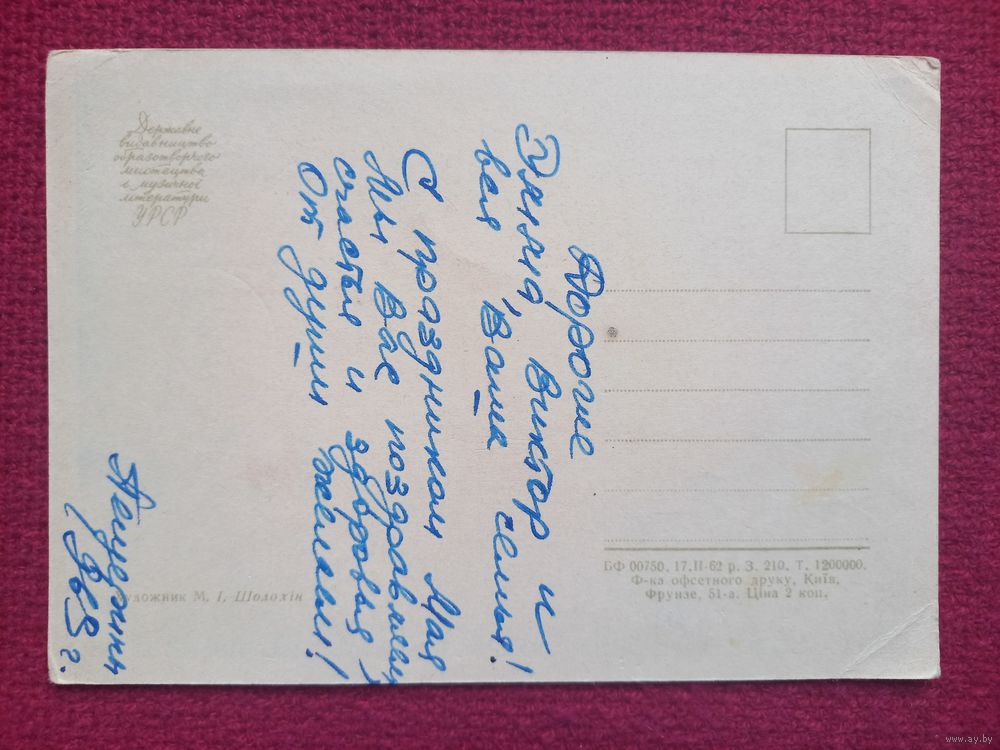 Державне
видавництво
образотворчого
мистецтва
і музичної
літератури
УРСР
Дорогие
Виктор и
вся Ваша семья!
С праздником Мая
Мы Вас поздравляем,
счастья и здоровья
От души желаем!
1963 г.
Художник М. І. Шолохін
БФ 00750. 17.II-62 р. З. 210. Т. 1200000.
Ф-ка офсетного друку, Київ,
Фрунзе, 51-а. Ціна 2 коп.
www.ay.by